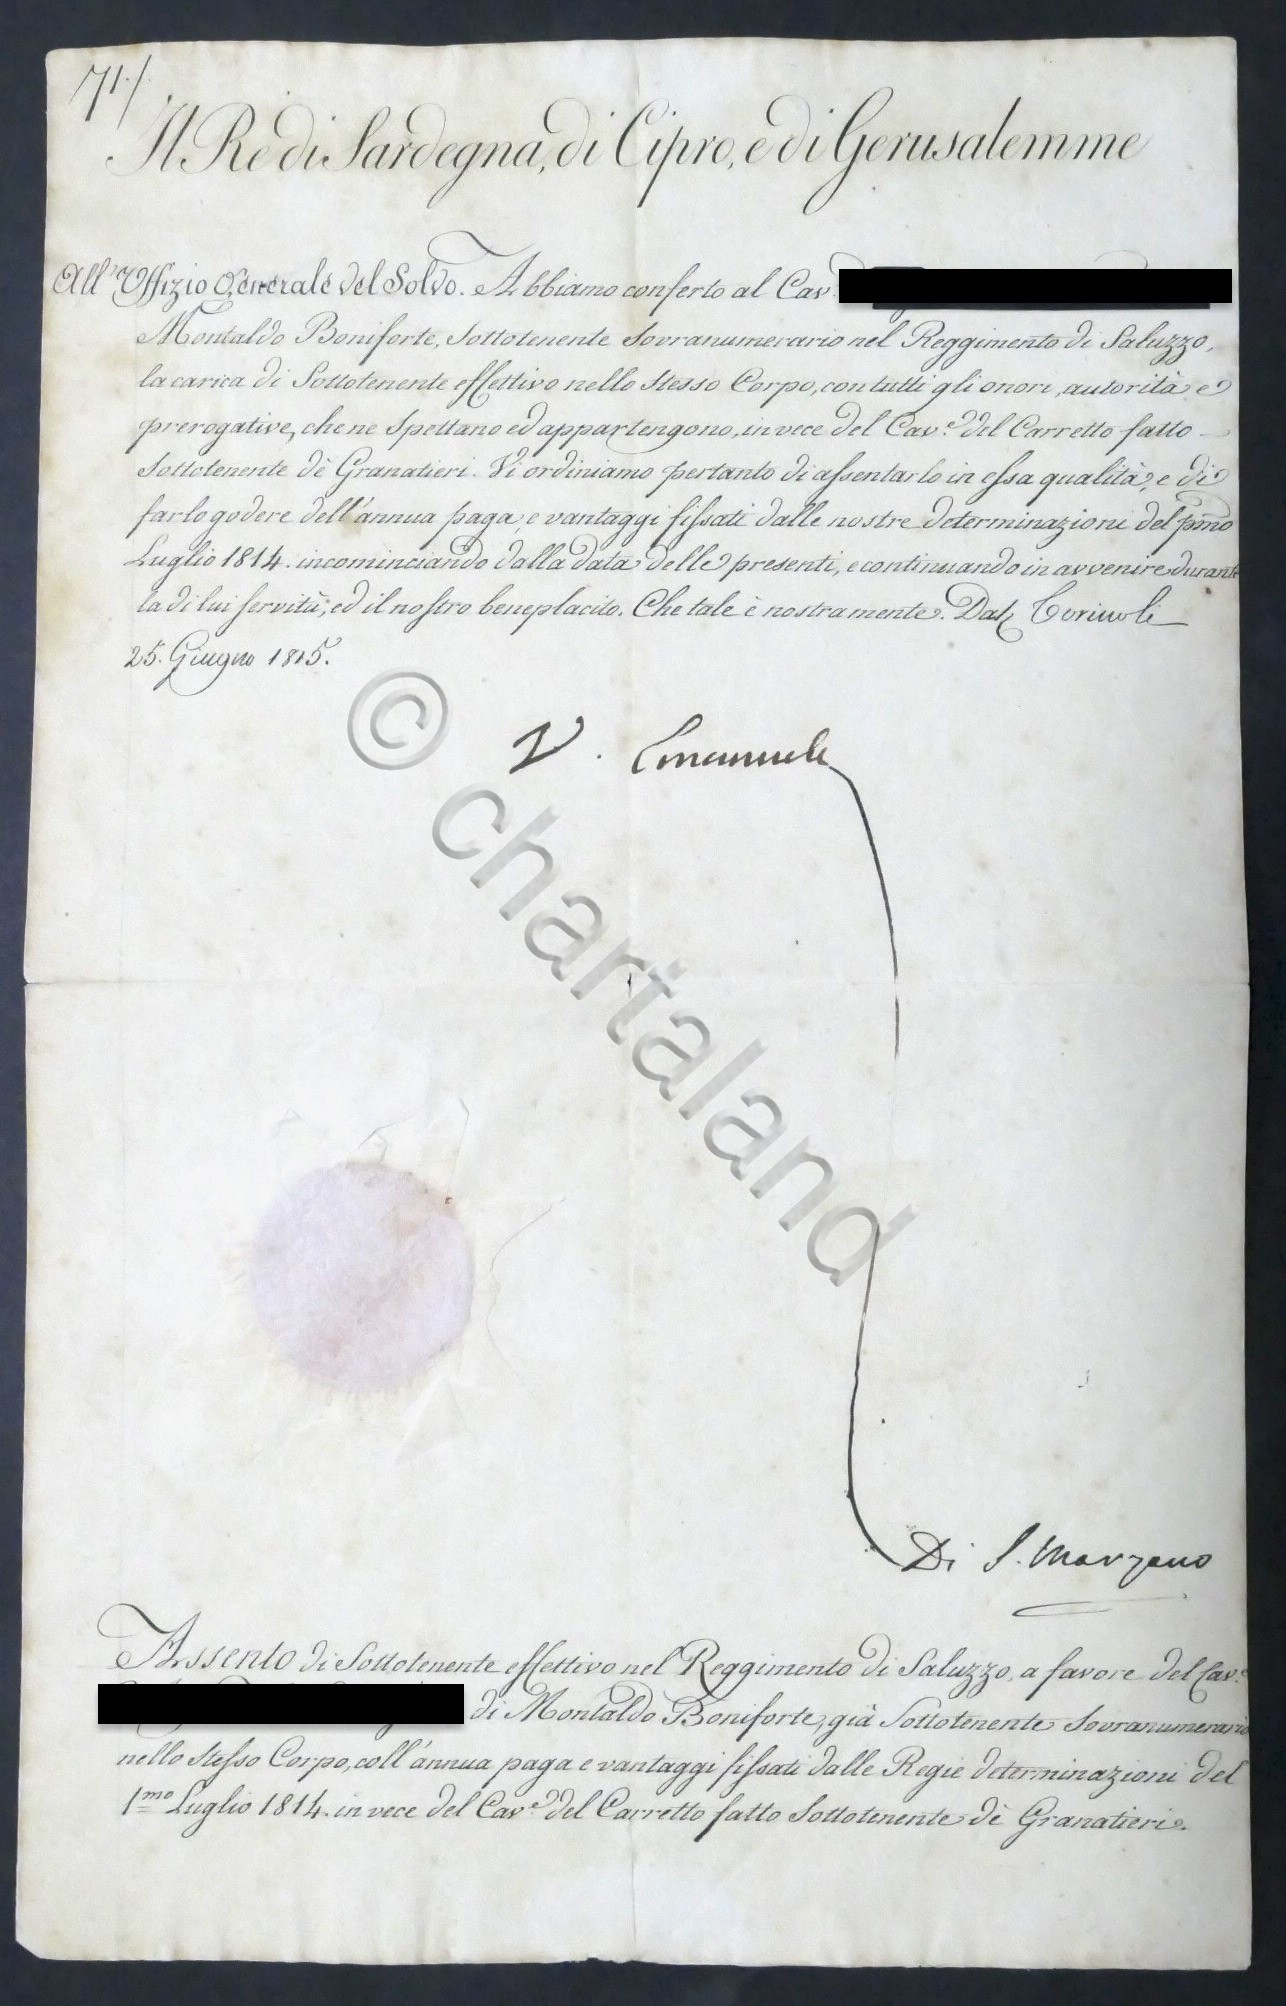 71./
Il Re di Sardegna, di Cipro, e di Gerusalemme
All' Uffizio Generale del Soldo. Abbiamo conferto al Cav.
Montaldo Boniforte, Sottotenente Sovranumerario nel Reggimento di Saluzzo,
la carica di Sottotenente effettivo nello stesso Corpo, con tutti gli onori, autorità e
prerogative, che ne spettano ed appartengono, in vece del Cav.e del Carretto fatto
Sottotenente dè Granatieri. Vi ordiniamo pertanto di assentarlo in essa qualità, e di
farlo godere dell'annua paga, e vantaggi fissati dalle nostre determinazioni del pmo
Luglio 1814. incominciando dalla data delle presenti, e continuando in avvenire durante
la di lui servitù, ed il nostro beneplacito. Che tale è nostra mente. Dat.
25. Giugno 1815.
V. Emanuele
© chartaland
Di S. Marzano
Assento di Sottotenente effettivo nel Reggimento di Saluzzo, a favore del Cav.e
di Montaldo Boniforte, già Sottotenente Sovranumerario
nello stesso Corpo, coll'annua paga e vantaggi fissati dalle Regie determinazioni del
1.mo Luglio 1814. in vece del Cav.e del Carretto fatto Sottotenente dè Granatieri.